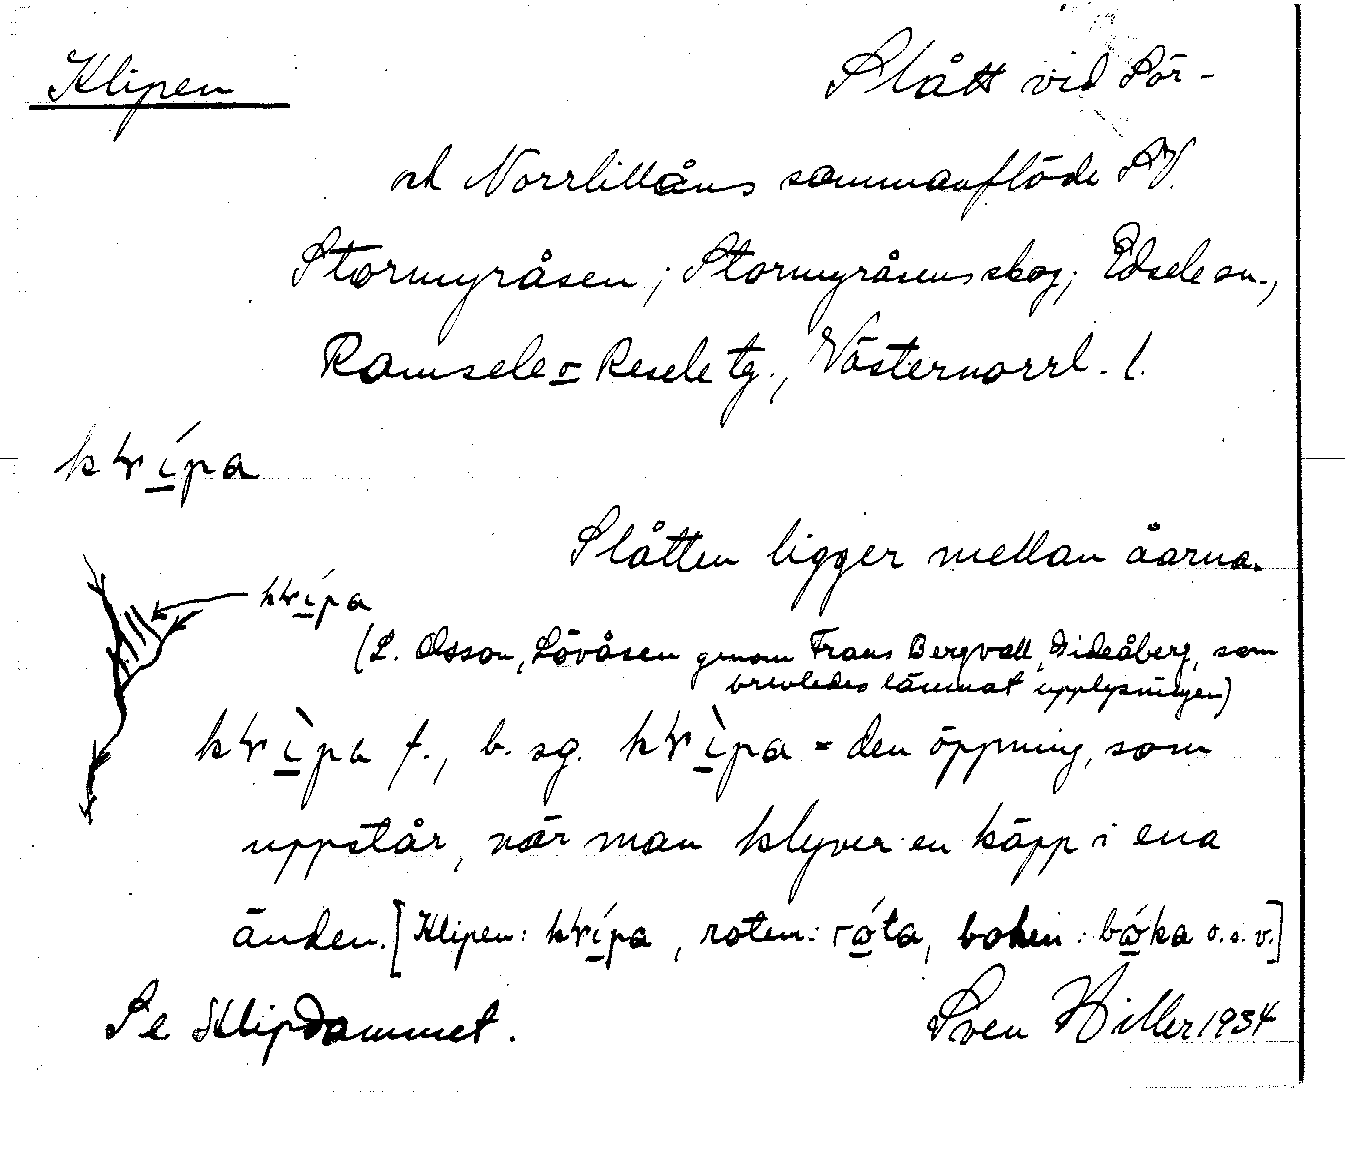 Klipen
Slått vid Sör-
och Norrlillåns sammanflöde SV.
Stormyråsen; Stormyråsens skog; Edsele sn.,
Ramsele o Resele tg., Västernorrl. l.
kɬípa
Slåtten ligger mellan åarna.
kɬípa
(L. Olsson, Lövåsen genom Frans Bergvall, Gideåberg, som
brevledes lämnat upplysningen)
kɬìpa f., b. sg. kɬìpa = den öppning, som
uppstår, när man klyver en käpp i ena
änden. [Klipen: kɬípa, roten: róta, boken: bóka o. s. v.]
Se Klipdammet.
Sven Hiller 1934